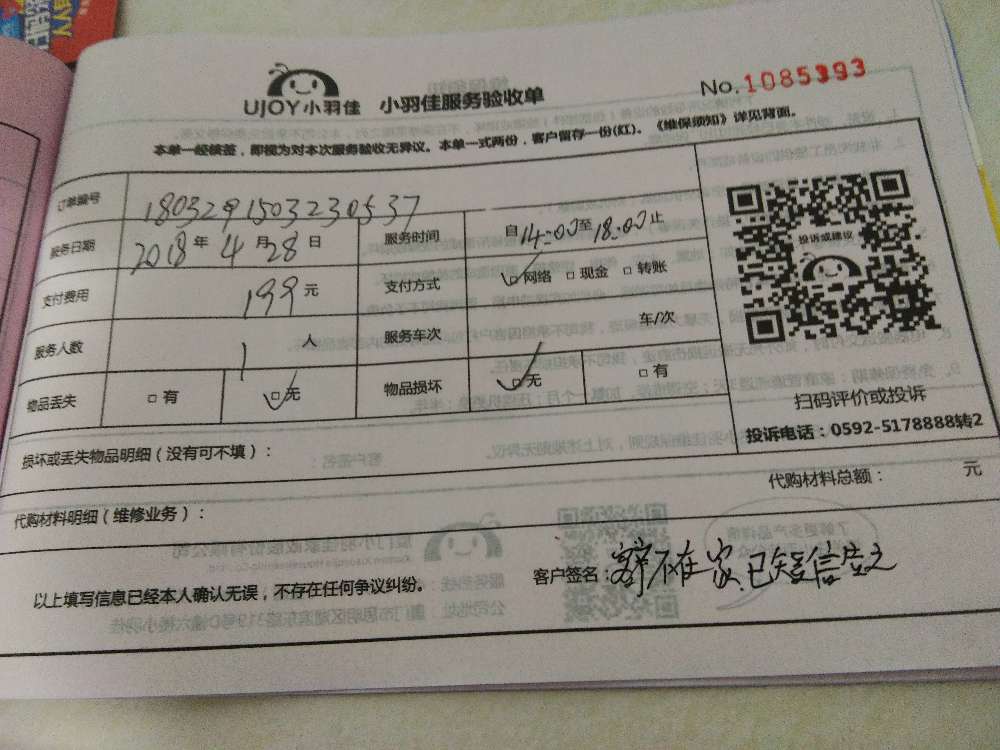 UJOY小羽佳 小羽佳服务验收单 No.1085393
本单一经核签，即视为对本次服务验收无异议。本单一式两份，客户留存一份(红)。《维保须知》详见背面。
订单编号 180329150323 0537
服务日期 2018年4月28日 服务时间 自14:00至18:00止
支付费用 199元 支付方式 □网络 □现金 □转账
服务人数 1人 服务车次 车/次
物品丢失 □有 □无 物品损坏 □无 □有
投诉或建议
扫码评价或投诉
投诉电话：0592-5178888转2
损坏或丢失物品明细（没有可不填）：
代购材料明细（维修业务）： 代购材料总额： 元
以上填写信息已经本人确认无误，不存在任何争议纠纷。 客户签名：客户不在家，已短信告之